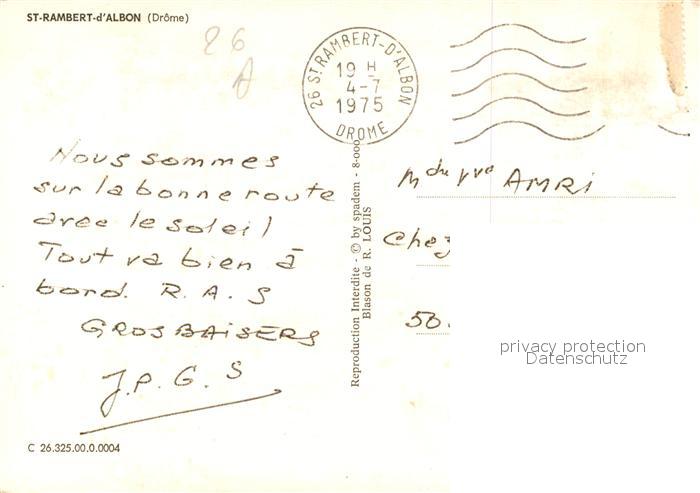 ST-RAMBERT-d'ALBON (Drôme)
26
A
26 ST RAMBERT-D'ALBON
19 H
4-7
1975
DROME
Nous sommes
sur la bonne route
avec le soleil
Tout va bien à
bord. R.A.S
GROS BAISERS
J.P.G.S
Reproduction Interdite - © by spadem - 8-000
Blason de R. LOUIS
AMRI
Chez
50.
privacy protection
Datenschutz
C 26.325.00.0.0004